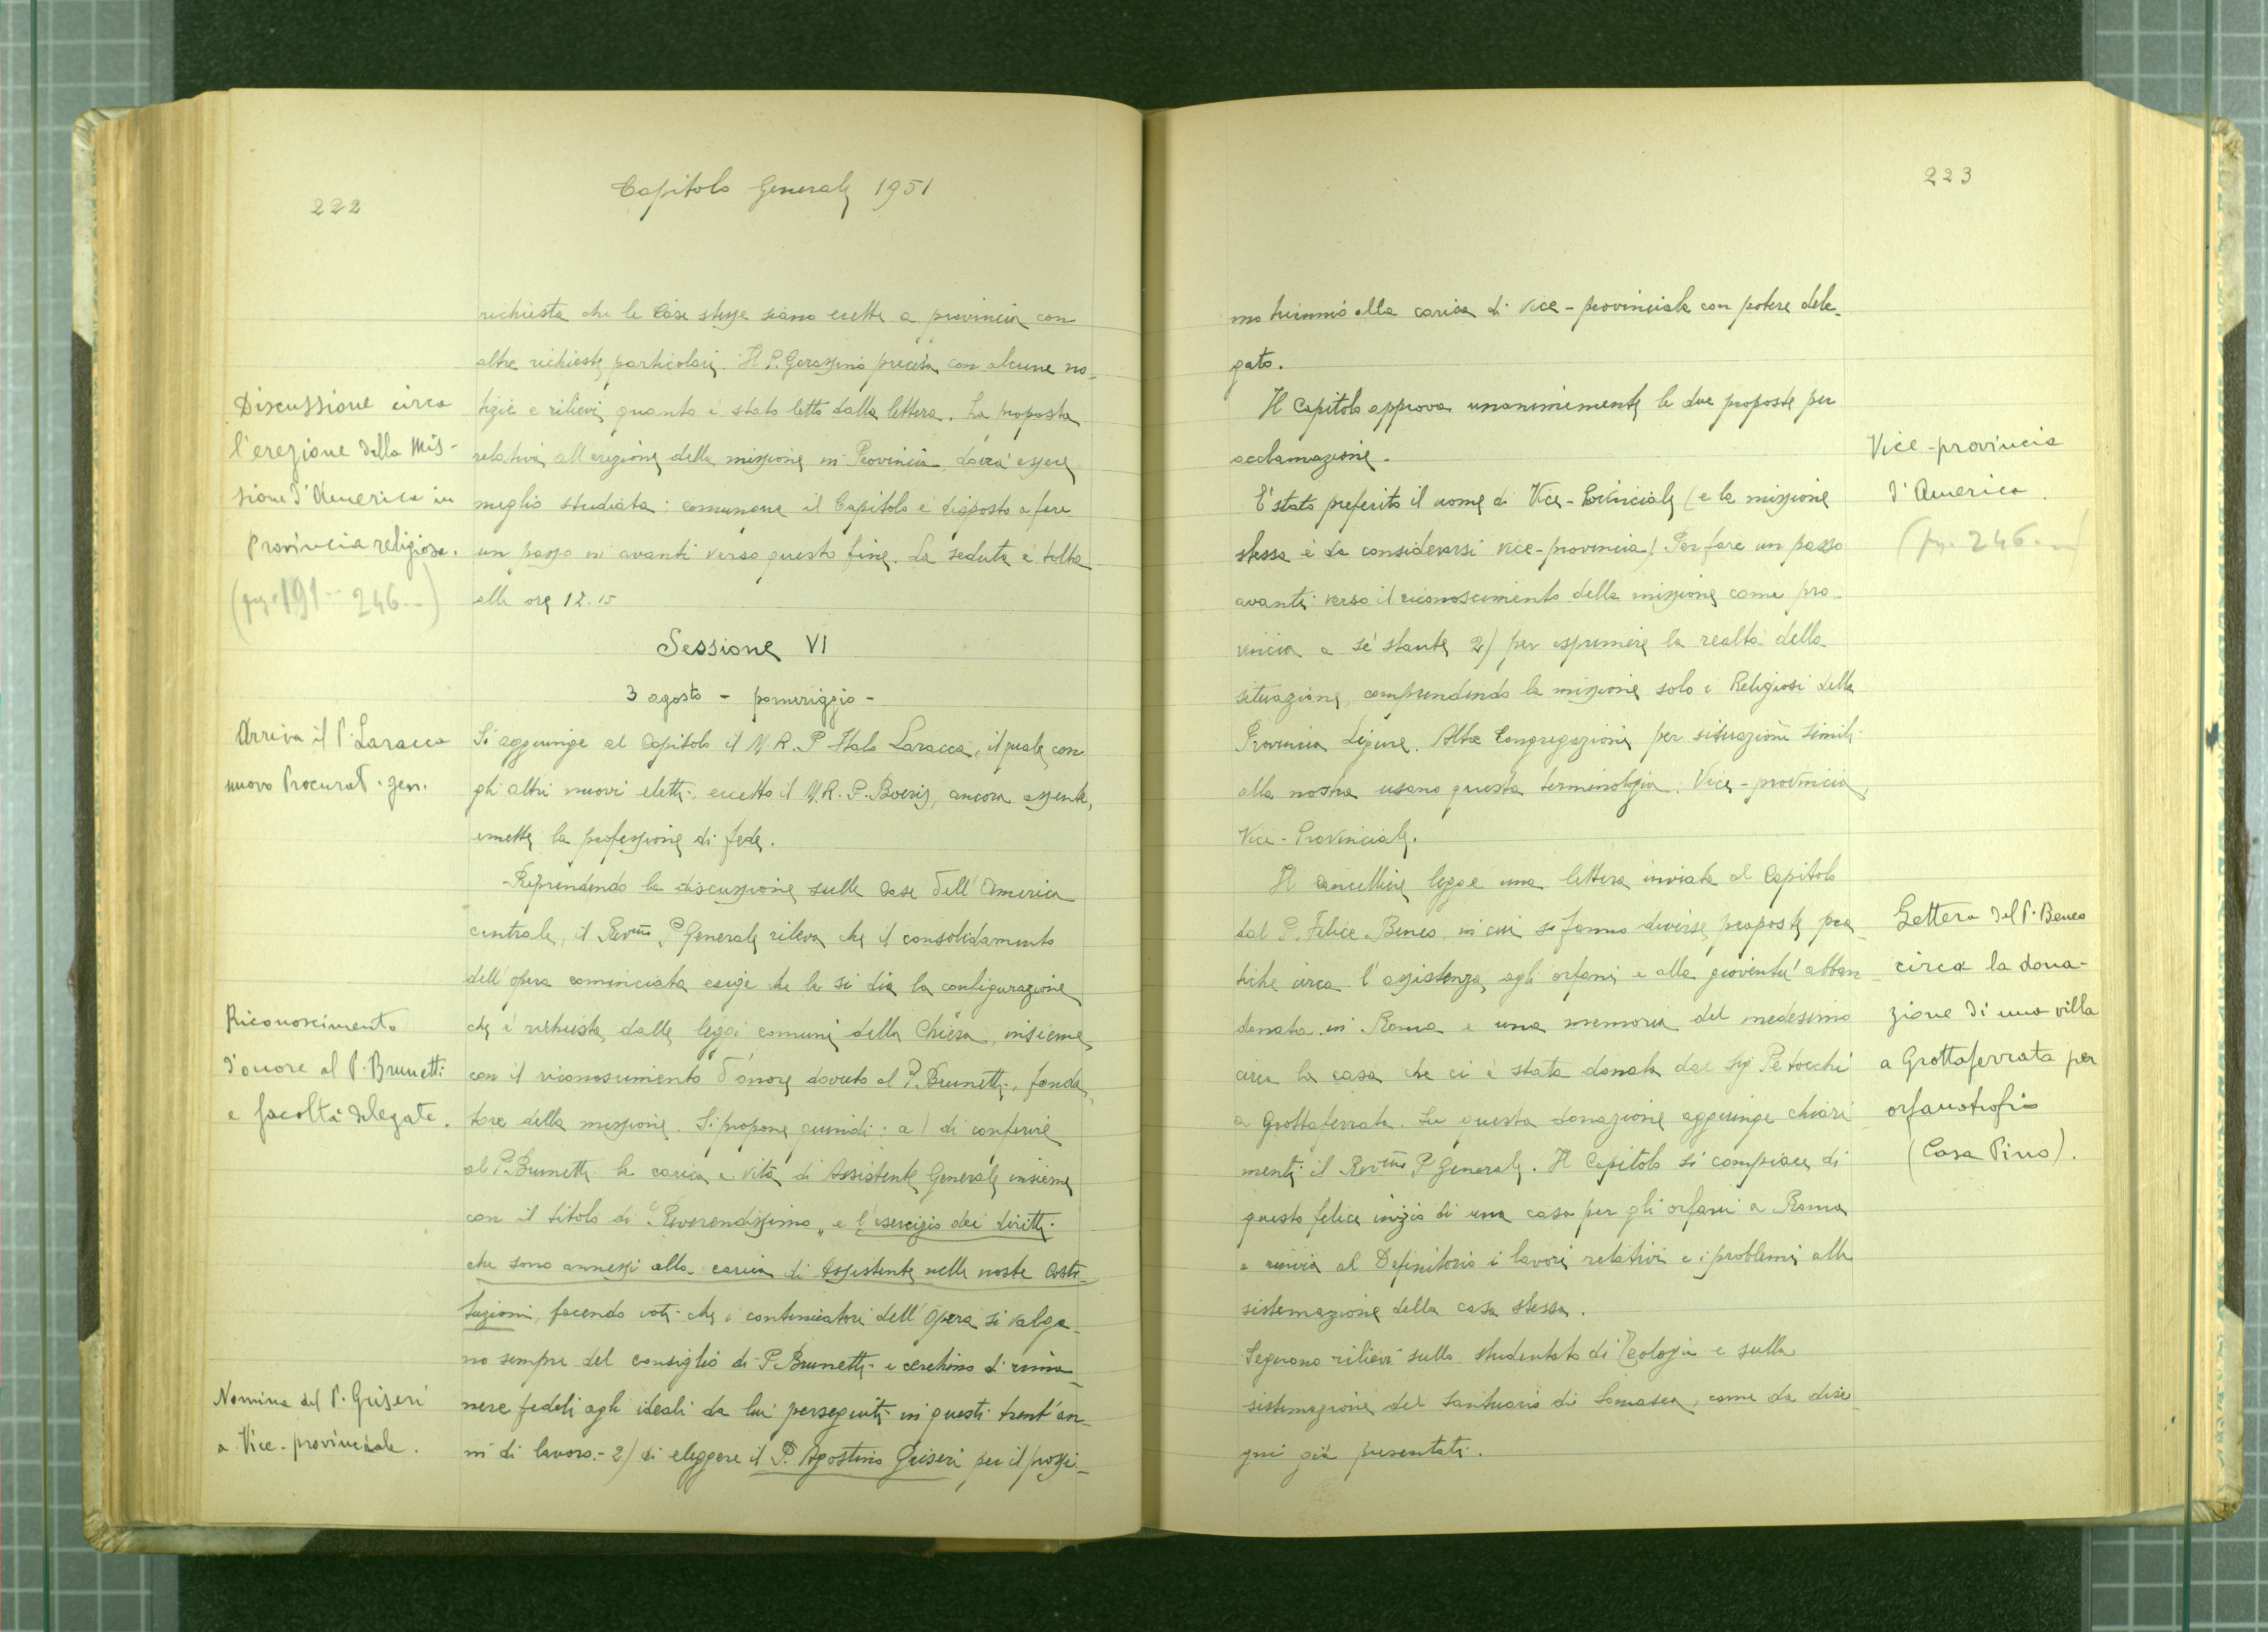 222
Capitolo Generale 1951
richiesta che le Case stesse siano erette a provincia con
altre richieste particolari. Il P. Garassino precisa con alcune no-
tizie e rilievi quanto è stato letto dalla lettera. La proposta
relativa all'erezione della missione in Provincia dovrà essere
meglio studiata: comunque il Capitolo è disposto a fare
un passo in avanti verso questo fine. La seduta è tolta
alle ore 12.15
Discussione circa
l'erezione della Mis-
sione d'America in
Provincia religiosa.
(pag. 191 - 246 -)
Sessione VI
3 agosto - pomeriggio -
Arriva il P. Laracca
nuovo Procurat. gen.
Si aggiunge al Capitolo il M. R. P. Italo Laracca, il quale con
gli altri nuovi eletti, eccetto il M. R. P. Boeris, ancora assente,
emette la professione di fede.
Riprendendo la discussione sulle Case dell'America
centrale, il Rev.mo P. Generale rileva che il consolidamento
dell'opera cominciata esige che le si dia la configurazione
che è richiesta dalle leggi comuni della Chiesa, insieme
con il riconoscimento d'onore dovuto al P. Brunetti, fonda-
tore della missione. Si propone quindi: a) di conferire
al P. Brunetti la carica a vita di Assistente Generale insieme
con il titolo di "Reverendissimo" e l'esercizio dei diritti
che sono annessi alla carica di Assistente nelle nostre Costi-
tuzioni, facendo voti che i continuatori dell'Opera si valga-
no sempre del consiglio di P. Brunetti e cerchino di rima-
nere fedeli agli ideali da lui perseguiti in questi trent'an-
ni di lavoro. - 2) di eleggere il P. Agostino Griseri per il prossi-
Riconoscimento
d'onore al P. Brunetti
e facoltà delegate.
Nomina del P. Griseri
a Vice-provinciale.
223
mo triennio alla carica di Vice-provinciale con potere dele-
gato.
Il Capitolo approva unanimemente le due proposte per
acclamazione.
E' stato preferito il nome di Vice-Provinciale (e la missione
stessa è da considerarsi vice-provincia) Per fare un passo
avanti verso il riconoscimento della missione come pro-
vincia a sè stante 2) per esprimere la realtà della
situazione, comprendendo la missione solo i Religiosi della
Provincia Ligure. Altre Congregazioni per situazioni simili
alla nostra usano questa terminologia: Vice-provincia,
Vice-Provinciale.
Vice-provincia
d'America
(pg. 246 -)
Il Cancelliere legge una lettera inviata al Capitolo
dal P. Felice Beneo in cui si fanno diverse proposte pra-
tiche circa l'assistenza agli orfani e alla gioventù abban-
donata in Roma e una memoria del medesimo
circa la casa che ci è stata donata dal Sig. Petocchi
a Grottaferrata. Su questa donazione aggiunge chiari-
menti il Rev.mo P. Generale. Il Capitolo si compiace di
questo felice inizio di una casa per gli orfani a Roma
e rinvia al Definitorio i lavori relativi e i problemi alla
sistemazione della casa stessa.
Lettera del P. Beneo
circa la dona-
zione di una villa
a Grottaferrata per
orfanotrofio
(Casa Pino).
Seguono rilievi sullo studentato di Teologia e sulla
sistemazione del Santuario di Somasca, come da dise-
gni già presentati.